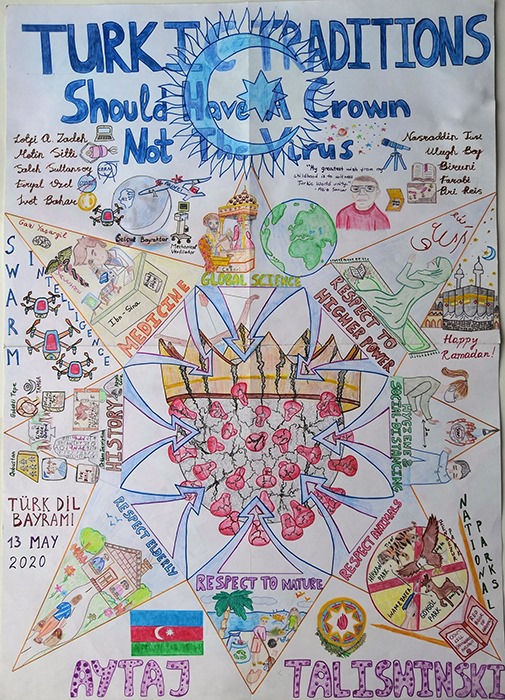 TURKIC TRADITIONS
Should Have A Crown
Not The Virus
Lotfi A. Zadeh
Metin Sitti
Saleh Sultansoy
Feryal Ozel
Ivet Bahar
Nasraddin Tusi
Ulugh Beg
Biruni
Farabi
Piri Reis
"My greatest wish from my
childhood is to witness
Turkic World unity."
Selcuk Bayraktar
Mechanical
Ventilator
Gazi Yasargil
Ibn-Sina
MEDICINE
GLOBAL SCIENCE
RESPECT TO
HIGHER POWER
SWARM
INTELLIGENCE
Happy
Ramadan!
Gobekli Tepe
Gobustan
HISTORY
HYGIENE &
SOCIAL-DISTANCING
TÜRK DIL
BAYRAMI
13 MAY
2020
RESPECT ELDERLY
RESPECT TO NATURE
RESPECT ANIMALS
NATIONAL
PARKS
PARK
GOYGOL
PARK
AYTAJ TALISHINSKI